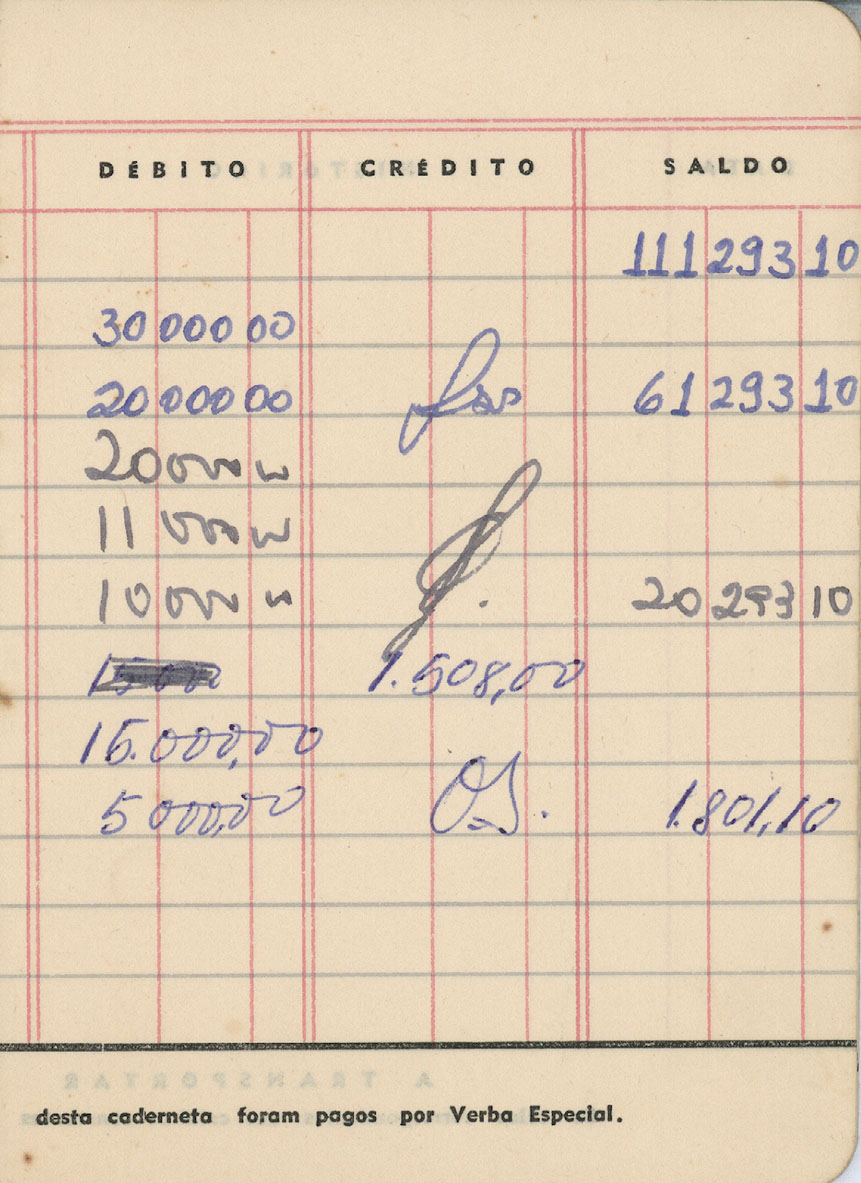 DÉBITO CRÉDITO SALDO
111 293 10
30 000 00
20 000 00 61 293 10
20 000 00
11 000 00
10 000 00 20 293 10
1.508,00
15.000,00
5 000,00 1.801,10
A TRANSPORTAR
desta caderneta foram pagos por Verba Especial.